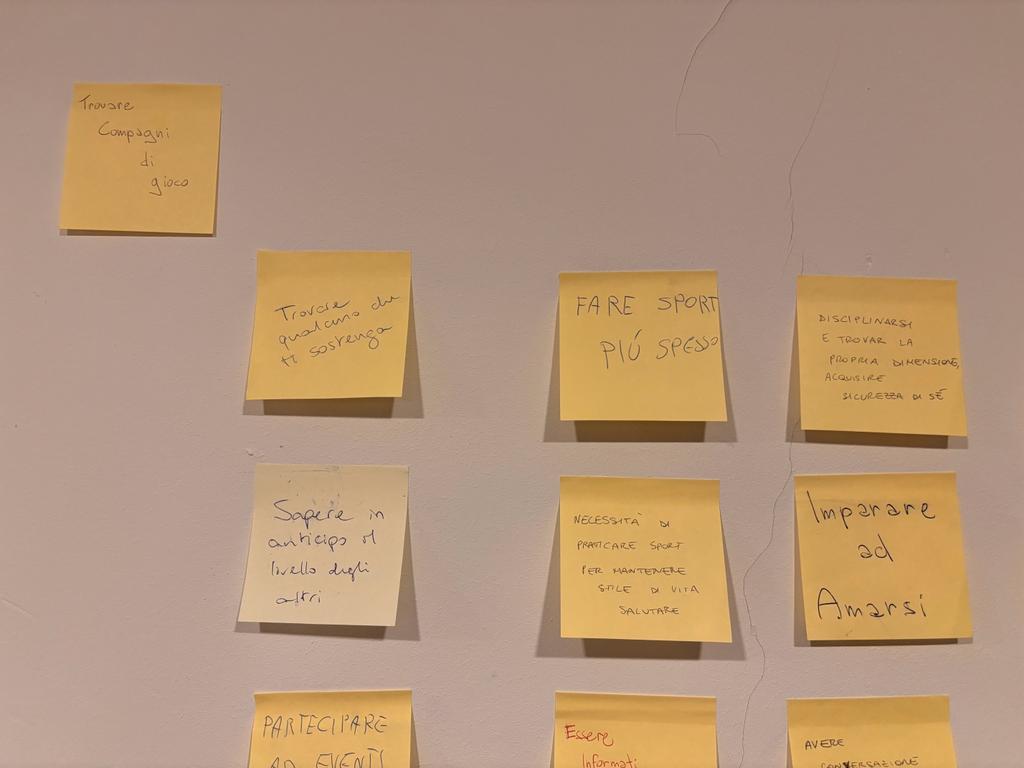 Trovare
Compagni
di
gioco
Trovare
qualcuno che
ti sostenga
FARE SPORT
PIÚ SPESSO
DISCIPLINARSI
E TROVAR LA
PROPRIA DIMENSIONE,
ACQUISIRE
SICUREZZA DI SÉ
Sapere in
anticipo il
livello degli
altri
NECESSITÀ DI
PRATICARE SPORT
PER MANTENERE
STILE DI VITA
SALUTARE
Imparare
ad
Amarsi
PARTECIPARE
AD EVENTI
Essere
Informati
AVERE
CONVERSAZIONE